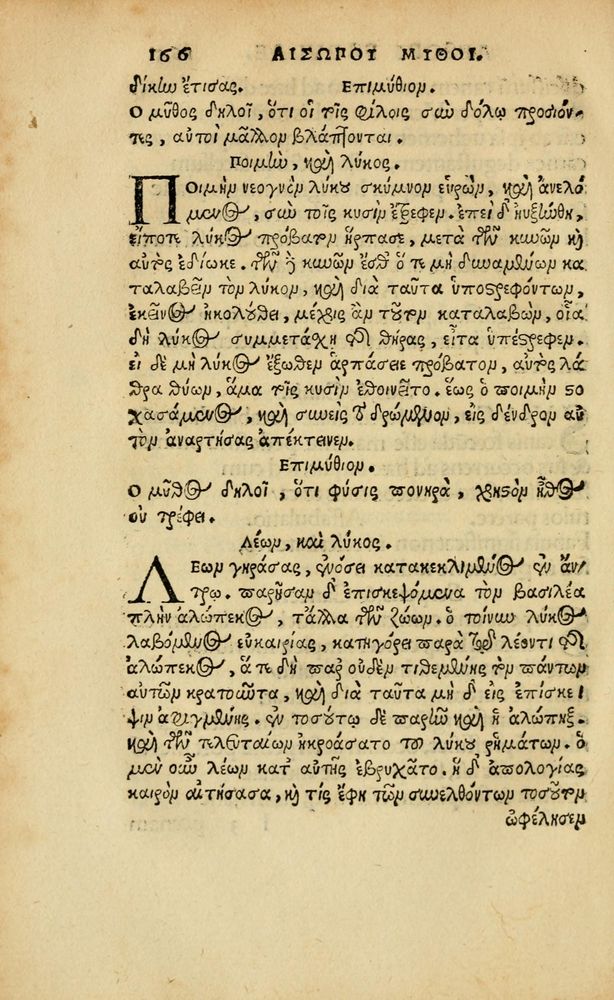 166 ΑΙΣΩΠΟΥ ΜΥΘΟΙ.
δίκην ἔτισας. Επιμύθιον.
Ο μῦθος δηλοῖ, ὅτι οἱ τοῖς φίλοις σὺν δόλῳ προσιόν
τες, αὐτοὶ μᾶλλον βλάπτονται.
Ποιμὴν, καὶ λύκος.
ΠΟιμὴν νεογνὸν λύκου σκύμνον εὑρὼν, καὶ ἀνελό
μενος, σὺν τοῖς κυσὶν ἔτρεφεν. ἐπεὶ δ' ηὐξήθη,
εἴποτε λύκος πρόβατον ἥρπασε, μετὰ τῶν κυνῶν καὶ
αὐτὸς ἐδίωκε. τῶν δὲ κυνῶν ἔσθ' ὅτε μὴ δυναμένων κα
ταλαβεῖν τὸν λύκον, καὶ διὰ ταῦτα ὑποστρεφόντων,
ἐκεῖνος ἠκολούθει, μέχρις ἂν τοῦτον καταλαβὼν, οἷα
δὴ λύκος συμμετάσχῃ τῆς θήρας, εἶτα ὑπέστρεφεν.
εἰ δὲ μὴ λύκος ἔξωθεν ἁρπάσειε πρόβατον, αὐτὸς λά
θρα θύων, ἅμα τοῖς κυσὶν ἐθοινεῖτο. ἕως ὁ ποιμὴν στο
χασάμενος, καὶ συνεὶς τὸ δρώμενον, εἰς δένδρον αὐ
τὸν ἀναρτήσας ἀπέκτεινεν.
Επιμύθιον.
Ο μῦθος δηλοῖ, ὅτι φύσις πονηρὰ, χρηστὸν ἦθος
οὐ τρέφει.
Λέων, καὶ λύκος.
ΛΕων γηράσας, ἐνόσει κατακεκλιμένος ἐν ἄν
τρῳ. παρῆσαν δ' ἐπισκεψόμενα τὸν βασιλέα
πλὴν ἀλώπεκος, τἄλλα τῶν ζώων. ὁ τοίνυν λύκος
λαβόμενος εὐκαιρίας, κατηγόρει παρὰ τῷ λέοντι τῆς
ἀλώπεκος, ἅτε δὴ παρ' οὐδὲν τιθεμένης τὸν πάντων
αὐτῶν κρατοῦντα, καὶ διὰ ταῦτα μὴ δ' εἰς ἐπίσκε
ψιν ἀφιγμένης. ἐν τοσούτῳ δὲ παρῆν καὶ ἡ ἀλώπηξ.
καὶ τῶν τελευταίων ἠκροάσατο τοῦ λύκου ῥημάτων. ὁ
μὲν οὖν λέων κατ' αὐτῆς ἐβρυχᾶτο. ἡ δ' ἀπολογίας
καιρὸν αἰτήσασα, καὶ τίς ἔφη τῶν συνελθόντων τοσοῦτον
ὠφέλησεν